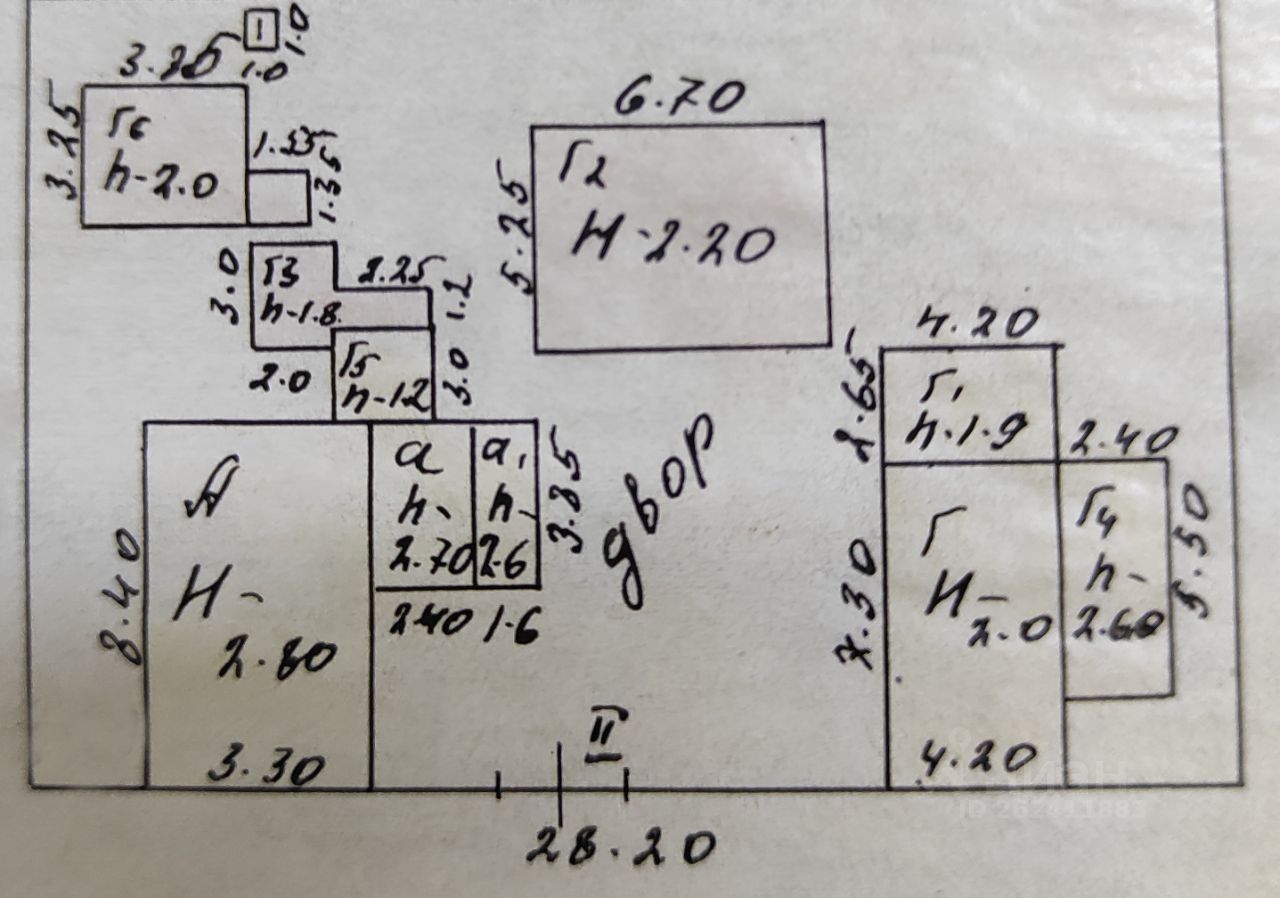 I
1.0
1.0
3.25
3.25
Г6
h-2.0
1.55
1.35
6.70
5.25
Г2
H-2.20
3.0
Г3
h-1.8
2.25
1.2
2.0
Г5
h-1.2
3.0
4.20
2.65
Г1
h-1.9
2.40
8.40
А
H-
2.80
3.30
а
h-
2.70
2.40
а1
h-
2.6
1.6
3.85
двор
7.30
Г
H-
2.0
4.20
Г4
h-
2.60
5.50
II
28.20